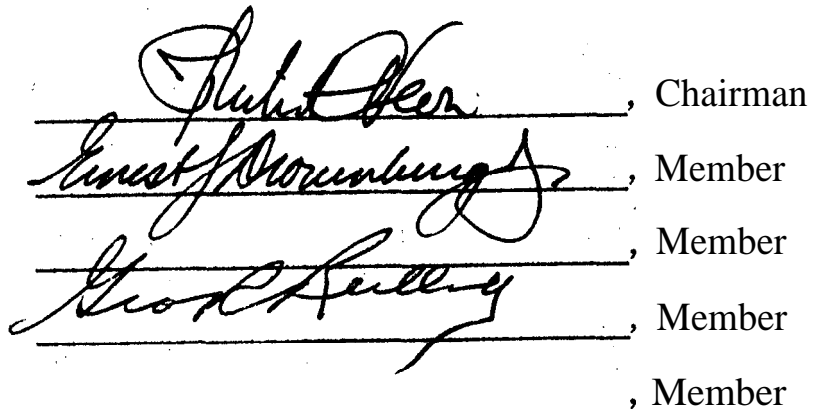 , Chairman
Ernest J Dronenburg Jr , Member
, Member
Geo R Reilly , Member
, Member